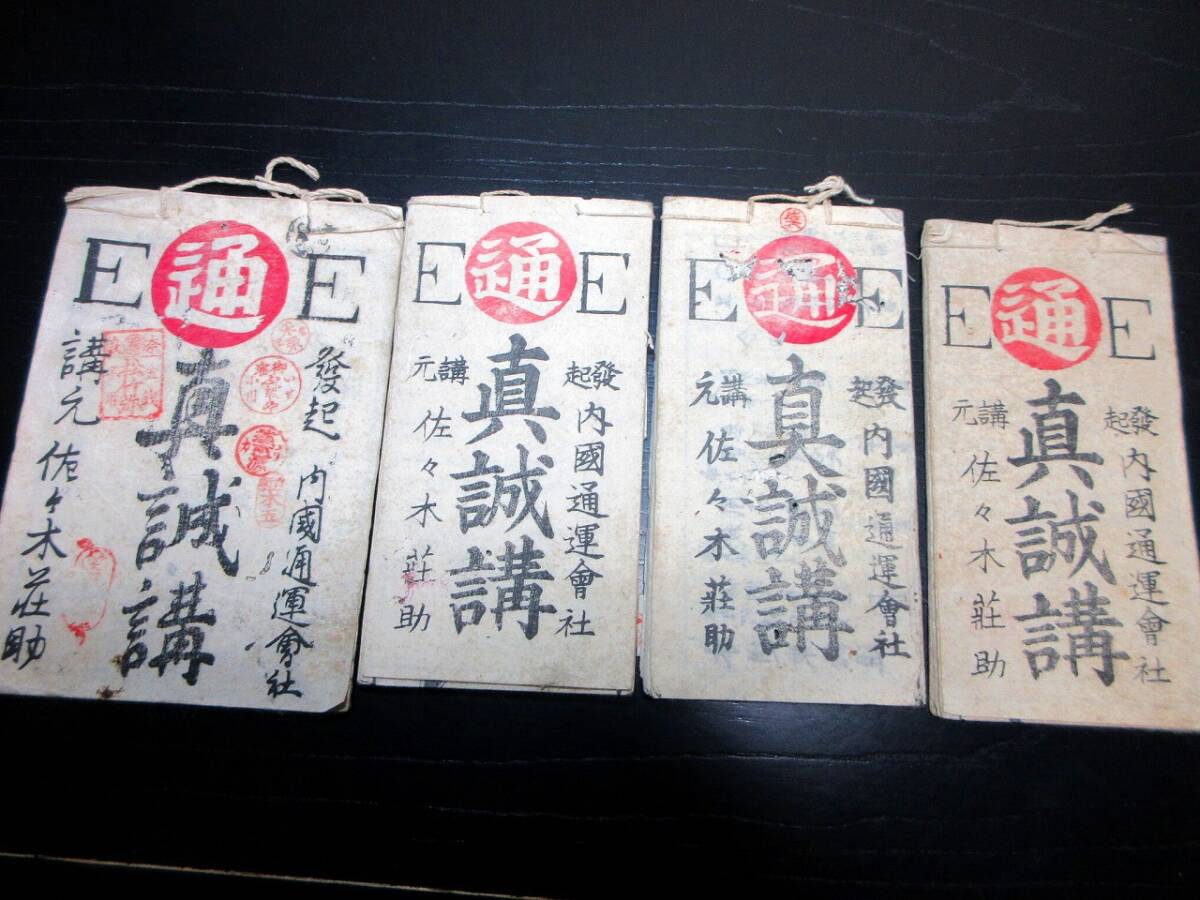 E 通 E
發起 内國通運會社
真誠講
講元 佐々木莊助
E 通 E
發起 内國通運會社
真誠講
講元 佐々木莊助
E 通 E
發起 内國通運會社
真誠講
講元 佐々木莊助
E 通 E
發起 内國通運會社
真誠講
講元 佐々木莊助